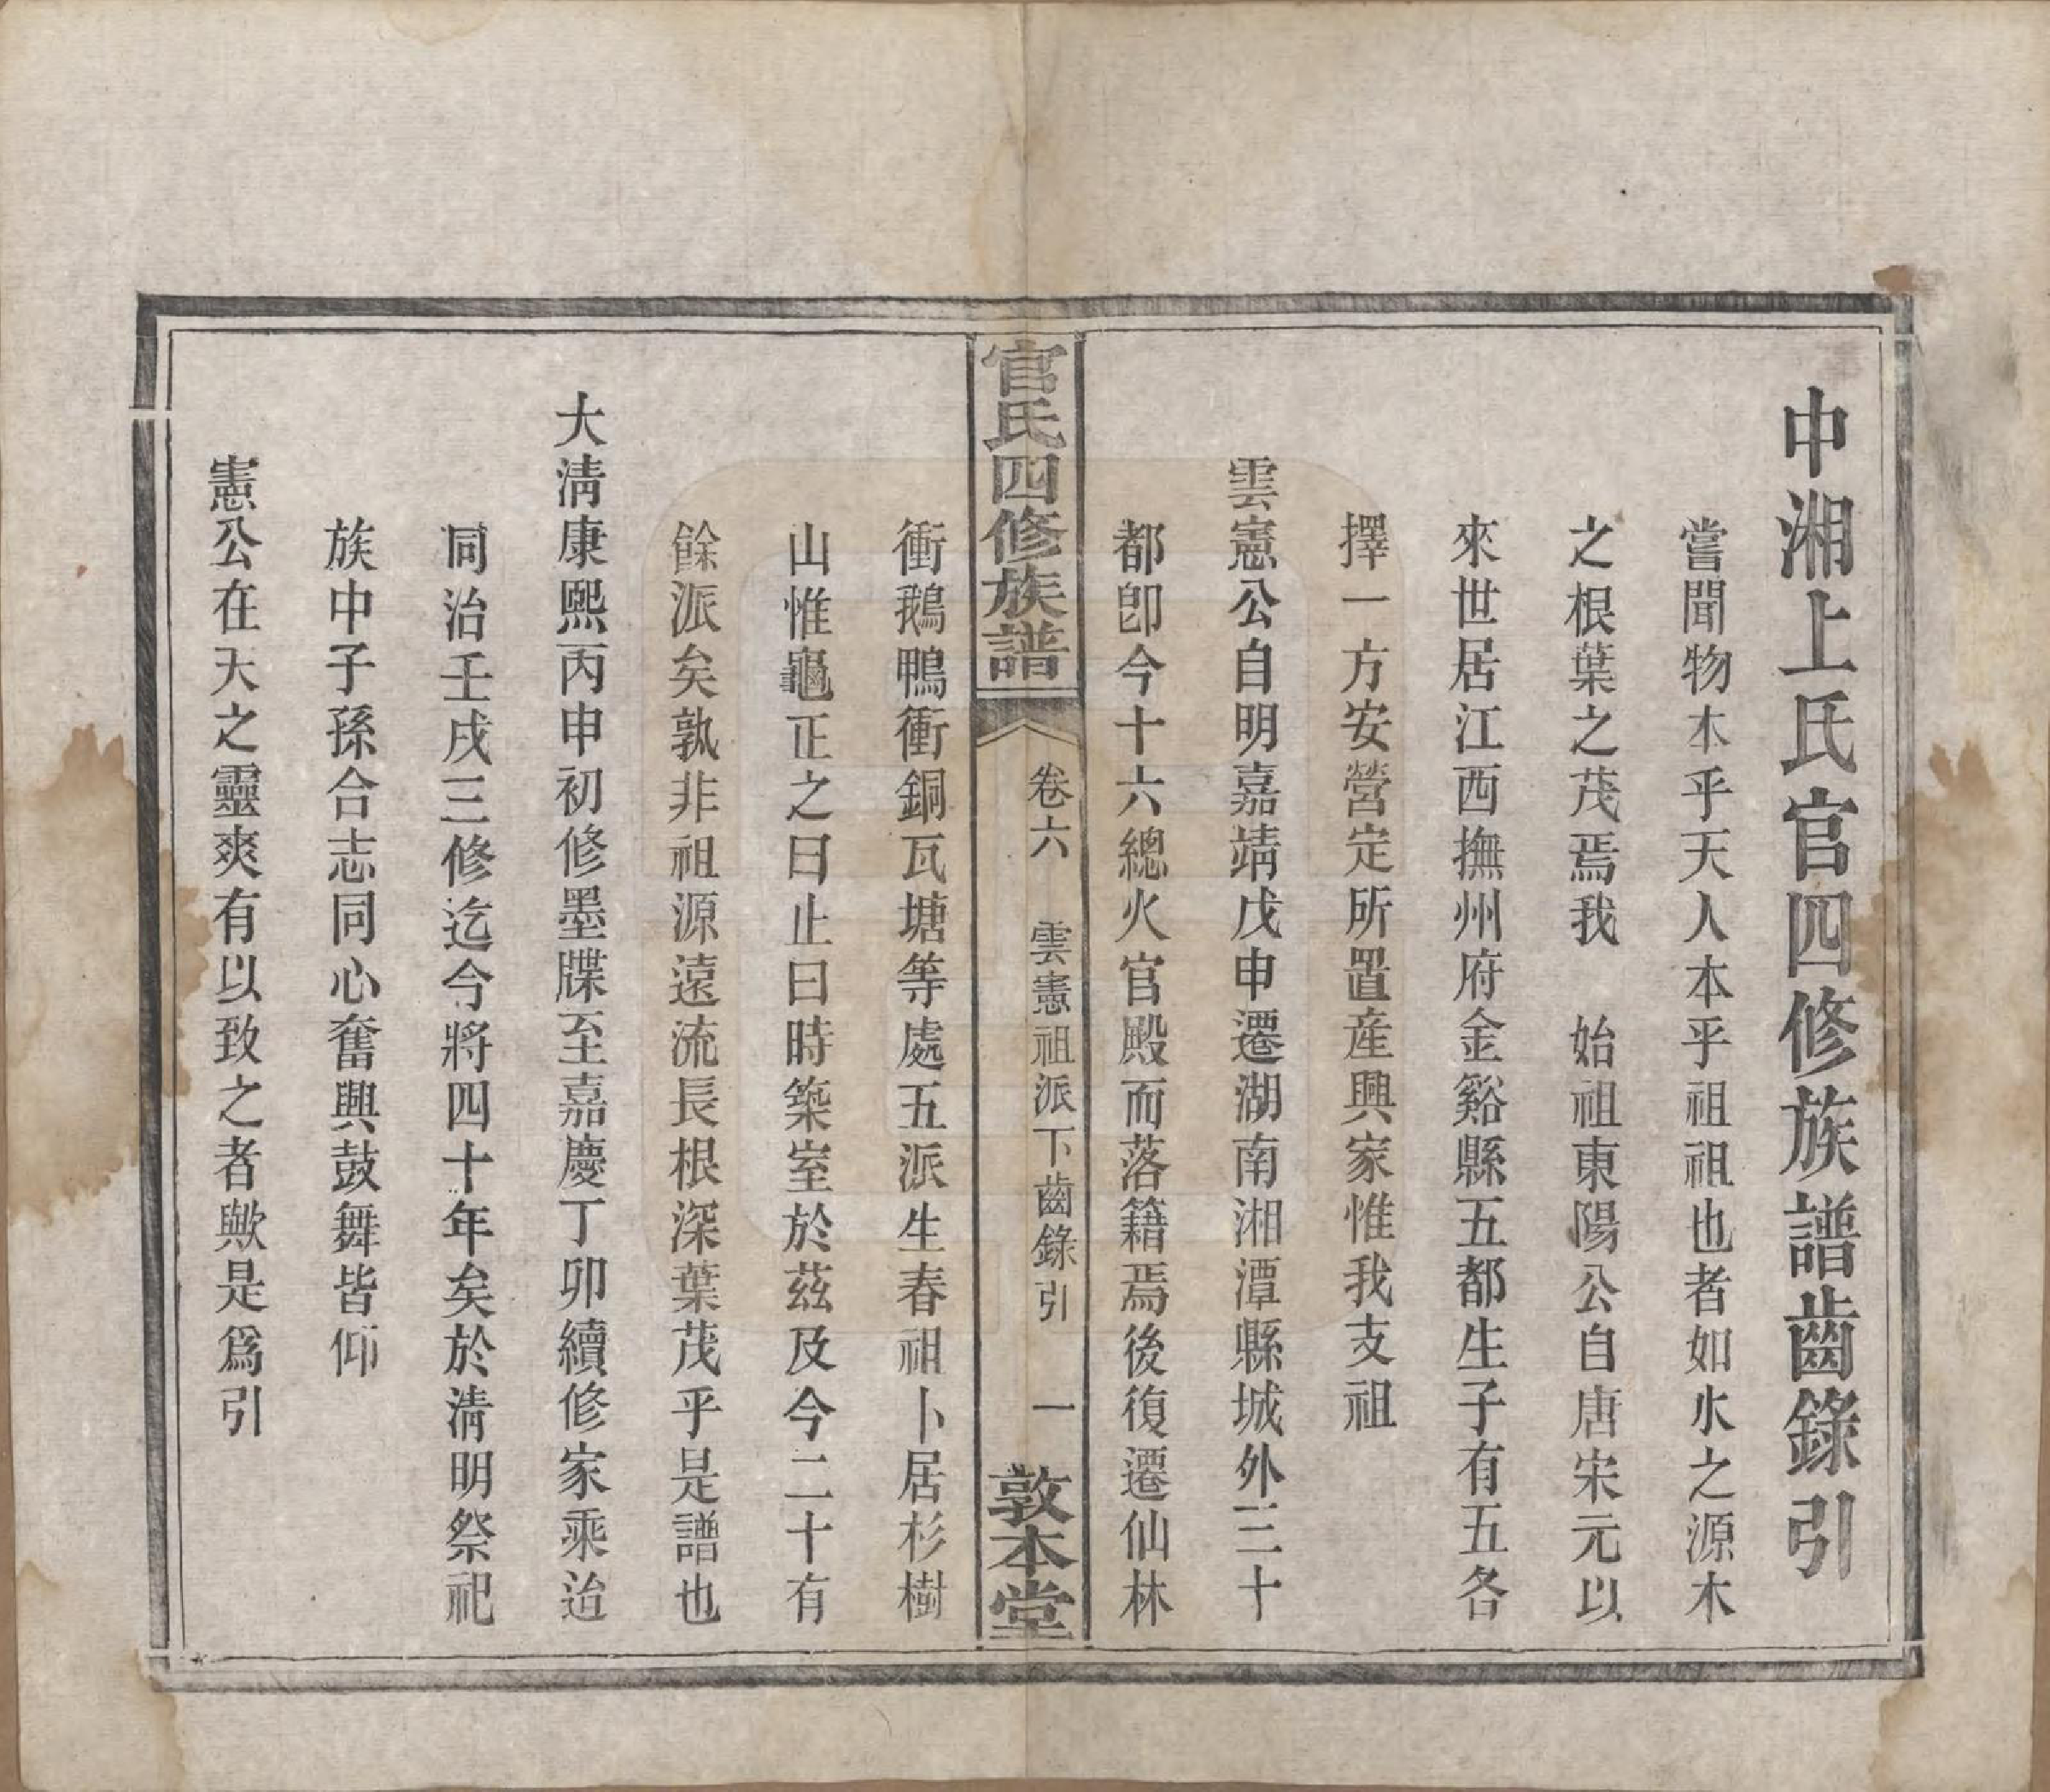 中湘上氏官四修族譜齒錄引
嘗聞物本乎天人本乎祖祖也者如水之源木
之根葉之茂焉我　始祖東陽公自唐宋元以
來世居江西撫州府金谿縣五都生子有五各
擇一方安營定所置産興家惟我支祖
雲憲公自明嘉靖戊申遷湖南湘潭縣城外三十
都卽今十六總火官殿而落籍焉後復遷仙林
官氏四修族譜
卷六　雲憲祖派下齒錄引　一
敦本堂
衝鵝鴨衝銅瓦塘等處五派生春祖卜居杉樹
山惟龜正之曰止曰時築室於茲及今二十有
餘派矣孰非祖源遠流長根深葉茂乎是譜也
大淸康熙丙申初修墨牒至嘉慶丁卯續修家乘迨
同治壬戌三修迄今將四十年矣於淸明祭祀
族中子孫合志同心奮興鼓舞皆仰
憲公在天之靈爽有以致之者歟是爲引